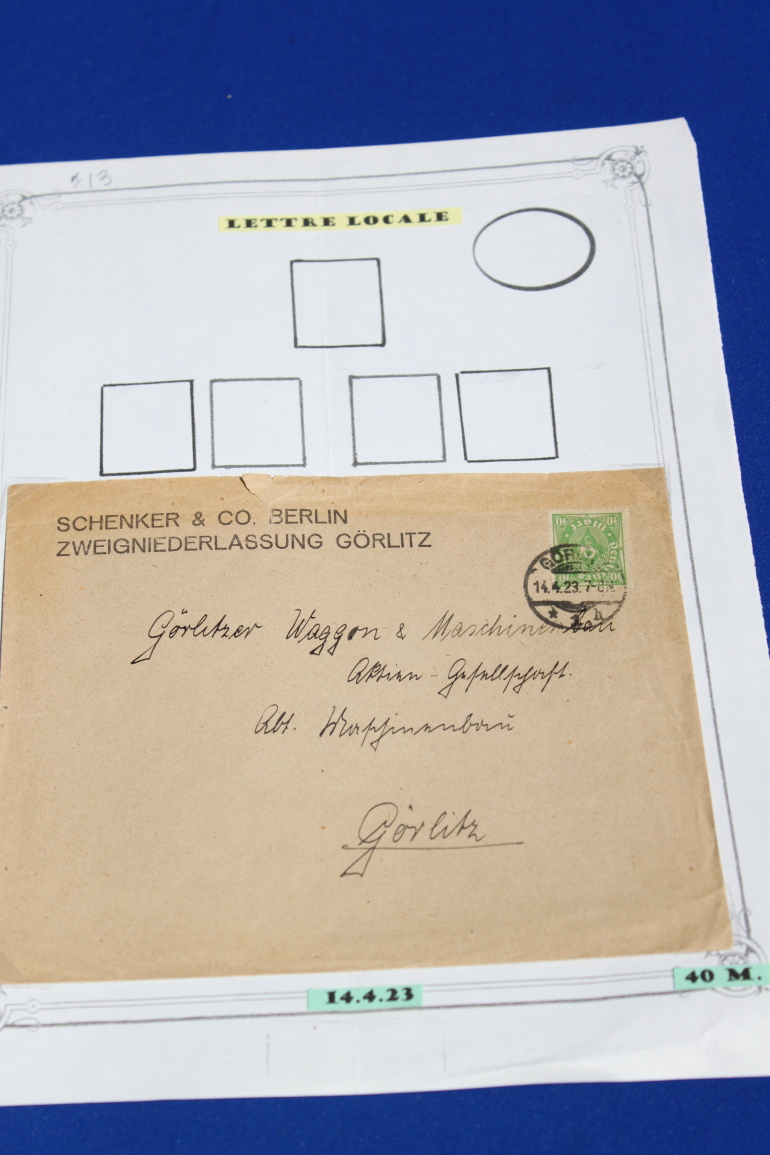 13
LETTRE LOCALE
SCHENKER & CO. BERLIN
ZWEIGNIEDERLASSUNG GÖRLITZ
40 40
40 40
14.4.23.7-8N
* 1 h
Görlitzer Waggon & Maschinenbau
Aktien-Gesellschaft.
Abt. Maschinenbau
Görlitz
14.4.23
40 M.